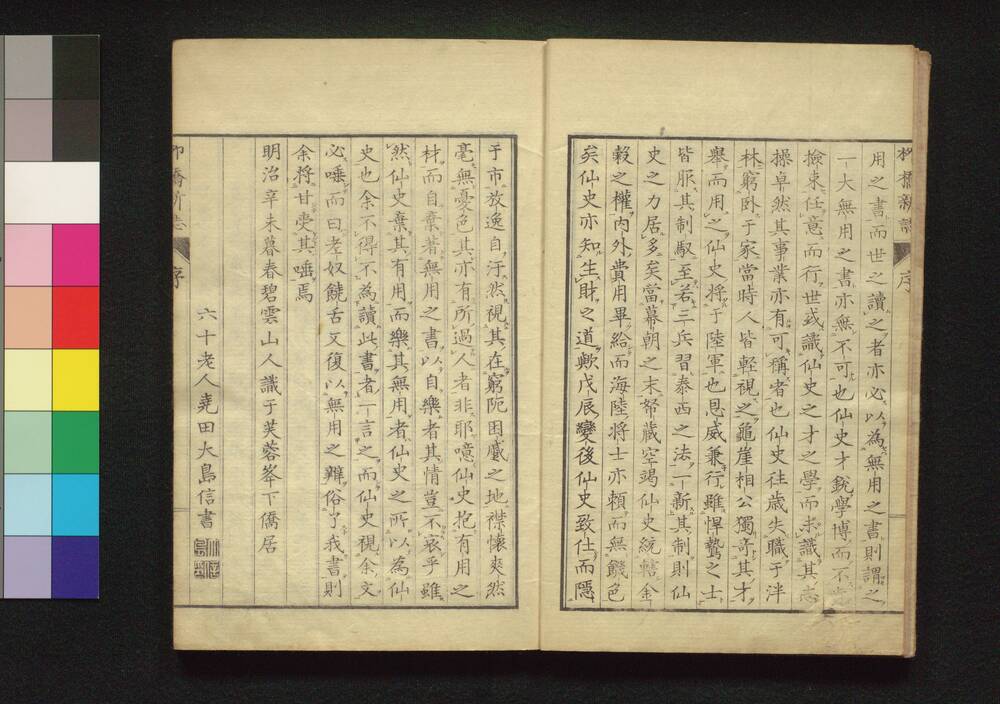 柳橋新誌
序
用之書而世之讀之者亦必以為無用之書則謂之
一大無用之書亦無不可也仙史才銳學博而不
撿束任意而行世或識仙史之才之學而未識其志
操卓然其事業亦有可稱者也仙史往歲失職于泮
林窮臥于家當時人皆輕視之龜崖相公獨奇其才
舉而用之仙史將于陸軍也恩威兼行雖悍驁之士
皆服其制馭至若三兵習泰西之法一新其制則仙
史之力居多矣當幕朝之末帑藏空竭仙史統轄金
穀之權內外費用畢給而海陸將士亦賴而無饑色
矣仙史亦知生財之道歟戊辰變後仙史致仕而隱
于市放逸自汙然視其在窮阨困蹙之地襟懷爽然
毫無憂色其亦有所過人者非耶噫仙史抱有用之
材而自棄著無用之書以自樂者其情豈不哀乎雖
然仙史棄其有用而樂其無用者仙史之所以為仙
史也余不得不為讀此書者一言之而仙史視余文
必唾而曰老奴饒舌又復以無用之辯俗了我書則
余將甘受其唾焉
明治辛未暮春碧雲山人識于芙蓉峯下僑居
六十老人堯田大島信書
柳橋新誌
序